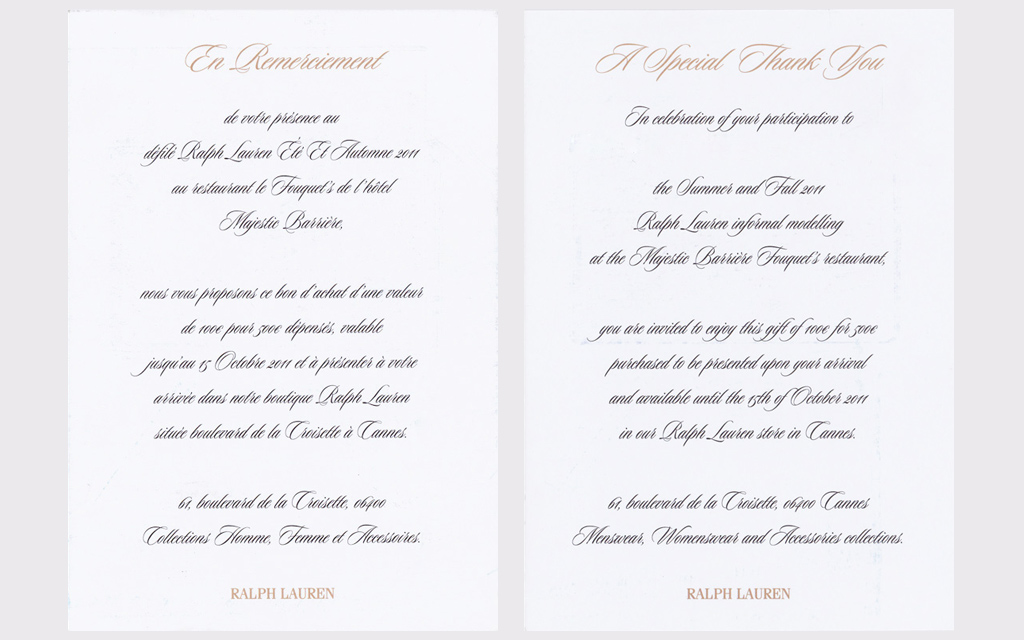 En Remerciement
de votre présence au
défilé Ralph Lauren Eté Et Automne 2011
au restaurant le Fouquet's de l'hôtel
Majestic Barrière,
nous vous proposons ce bon d'achat d'une valeur
de 100e pour 500e dépensés, valable
jusqu'au 15 Octobre 2011 et à présenter à votre
arrivée dans notre boutique Ralph Lauren
située boulevard de la Croisette à Cannes.
61, boulevard de la Croisette, 06400
Collections Homme, Femme et Accessoires.
RALPH LAUREN
A Special Thank You
In celebration of your participation to
the Summer and Fall 2011
Ralph Lauren informal modelling
at the Majestic Barrière Fouquet's restaurant,
you are invited to enjoy this gift of 100e for 500e
purchased to be presented upon your arrival
and available until the 15th of October 2011
in our Ralph Lauren store in Cannes.
61, boulevard de la Croisette, 06400 Cannes
Menswear, Womenswear and Accessories collections.
RALPH LAUREN